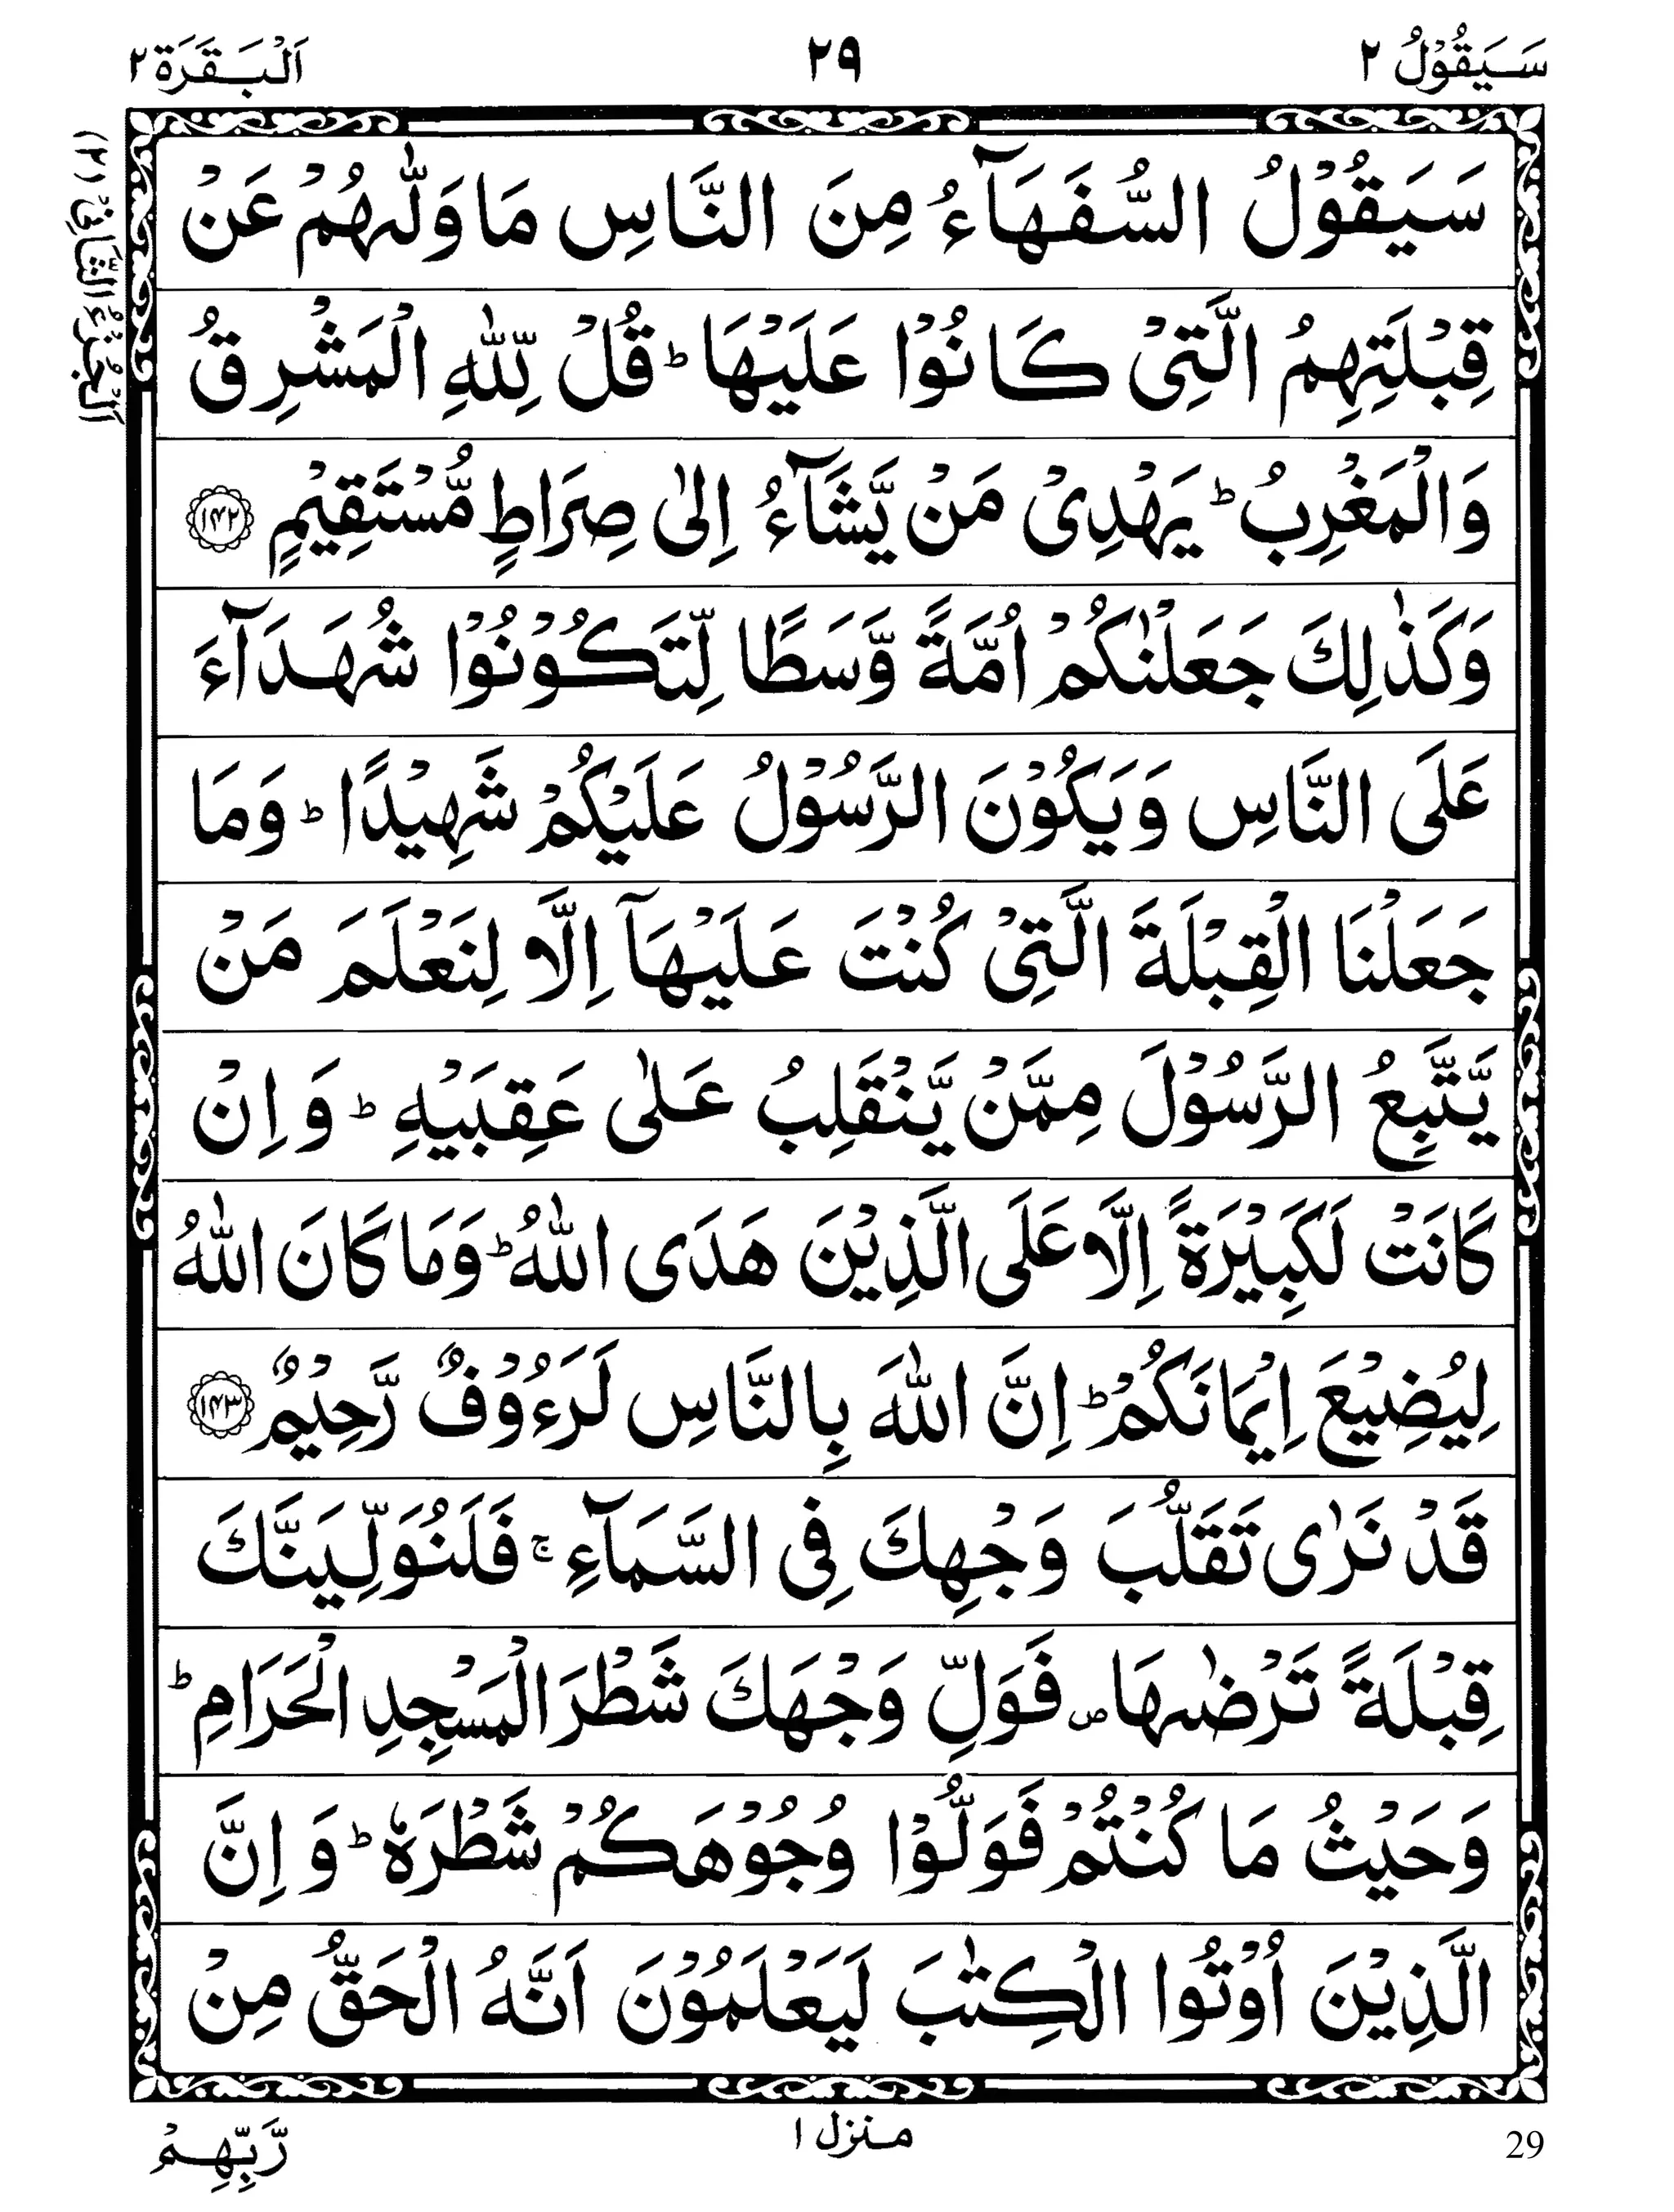 سَيَقُوْلُ ٢
٢٩
اَلْبَقَرَة ٢
اَلْجُزْءُ الثَّانِیْ (٢)
سَيَقُوْلُ السُّفَهَآءُ مِنَ النَّاسِ مَا وَلّٰىهُمْ عَنْ
قِبْلَتِهِمُ الَّتِیْ كَانُوْا عَلَيْهَا ؕ قُلْ لِّلّٰهِ الْمَشْرِقُ
وَالْمَغْرِبُ ؕ يَهْدِیْ مَنْ يَّشَآءُ اِلٰى صِرَاطٍ مُّسْتَقِيْمٍ ۝١۴٢
وَكَذٰلِكَ جَعَلْنٰكُمْ اُمَّةً وَّسَطًا لِّتَكُوْنُوْا شُهَدَآءَ
عَلَى النَّاسِ وَيَكُوْنَ الرَّسُوْلُ عَلَيْكُمْ شَهِيْدًا ؕ وَمَا
جَعَلْنَا الْقِبْلَةَ الَّتِیْ كُنْتَ عَلَيْهَآ اِلَّا لِنَعْلَمَ مَنْ
يَّتَّبِعُ الرَّسُوْلَ مِمَّنْ يَّنْقَلِبُ عَلٰى عَقِبَيْهِ ؕ وَ اِنْ
كَانَتْ لَكَبِيْرَةً اِلَّا عَلَى الَّذِيْنَ هَدَى اللّٰهُ ؕ وَمَا كَانَ اللّٰهُ
لِيُضِيْعَ اِيْمَانَكُمْ ؕ اِنَّ اللّٰهَ بِالنَّاسِ لَرَءُوْفٌ رَّحِيْمٌ ۝١۴٣
قَدْ نَرٰى تَقَلُّبَ وَجْهِكَ فِی السَّمَآءِ ۚ فَلَنُوَلِّيَنَّكَ
قِبْلَةً تَرْضٰىهَا ۪ فَوَلِّ وَجْهَكَ شَطْرَ الْمَسْجِدِ الْحَرَامِ ؕ
وَحَيْثُ مَا كُنْتُمْ فَوَلُّوْا وُجُوْهَكُمْ شَطْرَهٗ ؕ وَ اِنَّ
الَّذِيْنَ اُوْتُوا الْكِتٰبَ لَيَعْلَمُوْنَ اَنَّهُ الْحَقُّ مِنْ
رَّبِّهِمْ
منزل ١
29